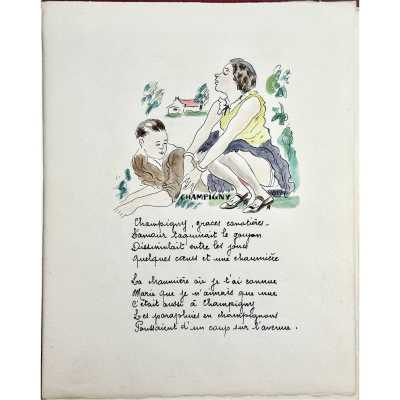 CHAMPIGNY
Champigny, graces canotières
L'amour taquinait le goujon
Dissimulait entre les joncs
Quelques cœurs et une chaumière
La chaumière où je t'ai connue
Marie que je n'aimais que nue
C'était aussi à Champigny
Les parapluies en champignons
Poussaient d'un coup sur l'avenue.